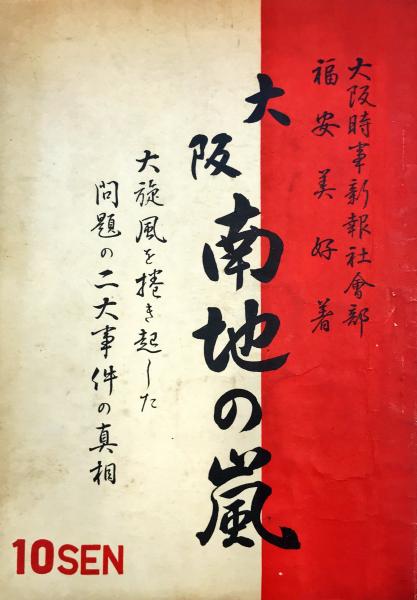 大阪時事新報社會部
福安美好著
大阪南地の嵐
大旋風を捲き起した
問題の二大事件の真相
10SEN